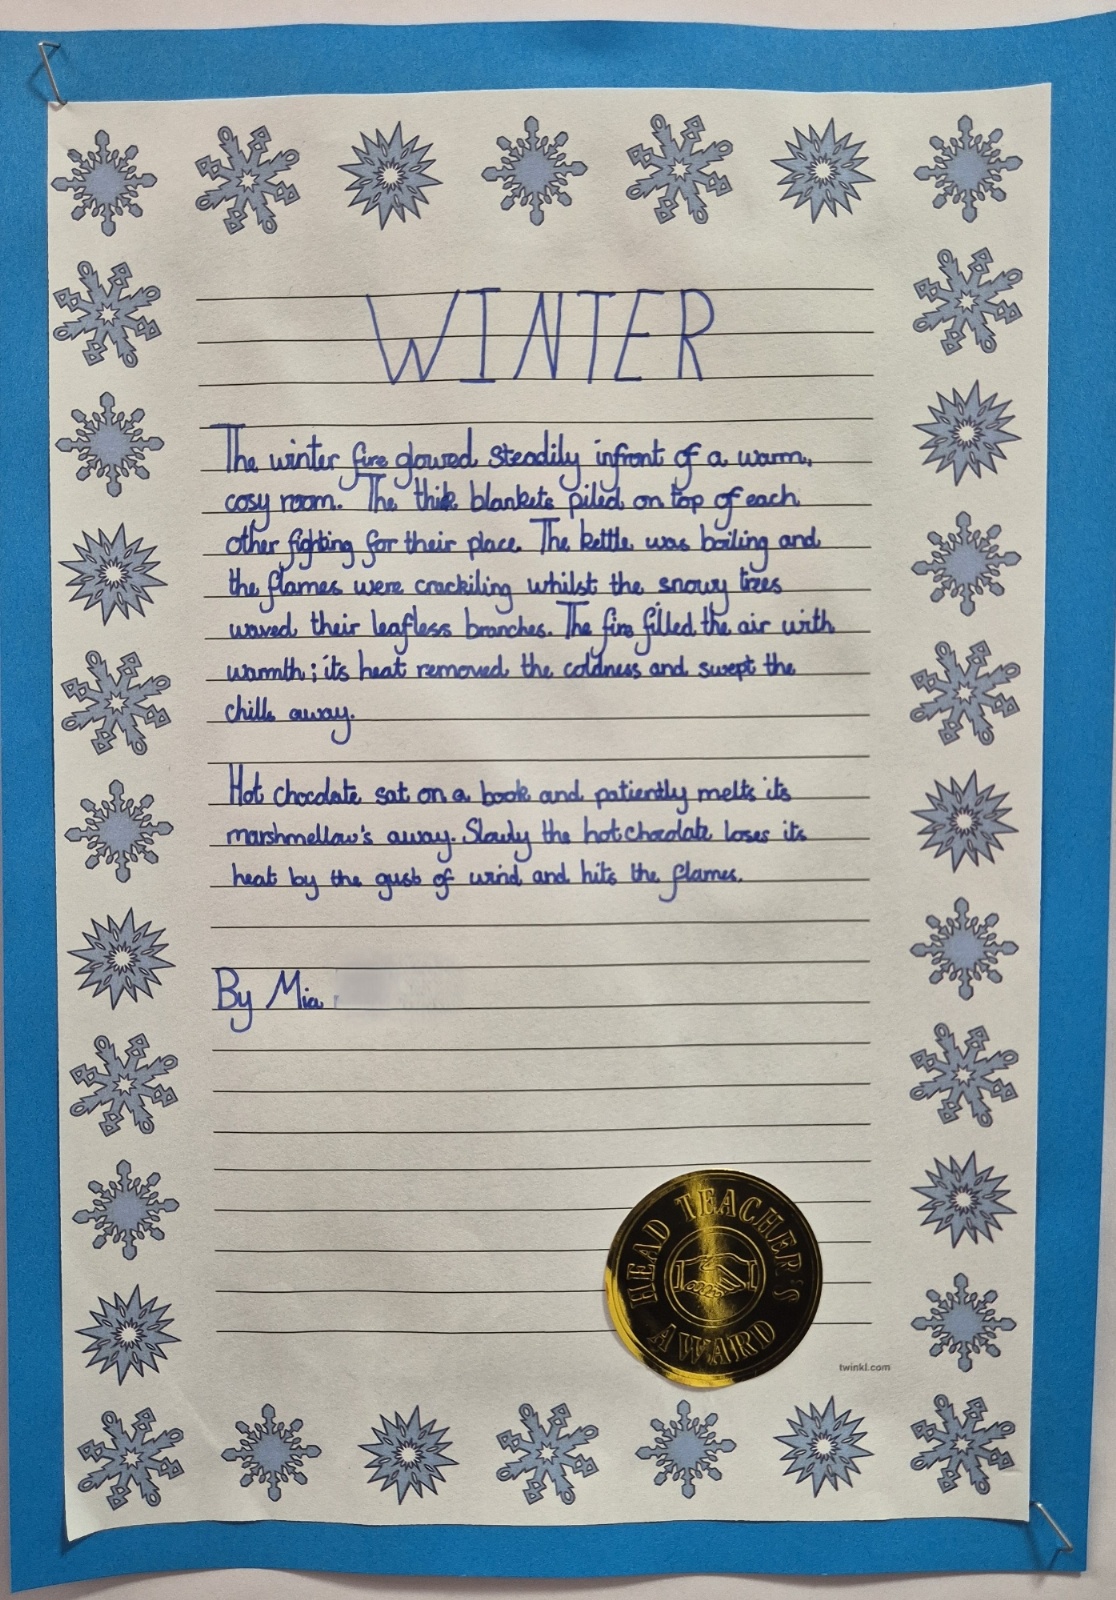 WINTER
The winter fire glowed steadily infront of a warm,
cosy room. The thick blankets piled on top of each
other fighting for their place. The kettle was boiling and
the flames were crackiling whilst the snowy trees
waved their leafless branches. The fire filled the air with
warmth; its heat removed the coldness and swept the
chills away.
Hot chocolate sat on a book and patiently melts its
marshmellow's away. Slowly the hot chocolate loses its
heat by the gust of wind and hits the flames.
By Mia
HEAD TEACHER'S
AWARD
twinkl.com